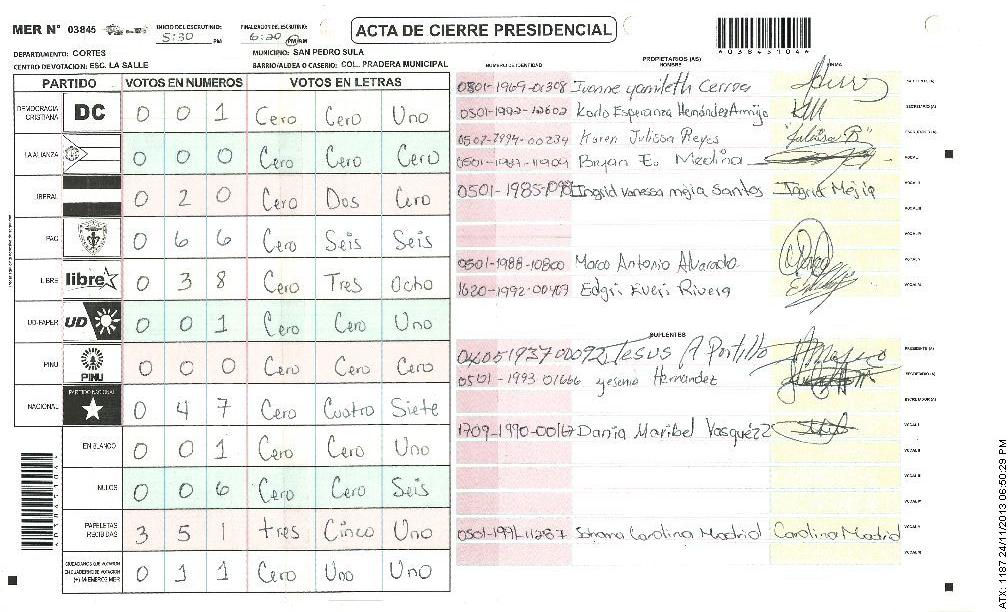 MER N° 03845
INICIO DEL ESCRUTINIO: 5:30 PM
FINALIZACION DEL ESCRUTINIO: 6:20 PM
ACTA DE CIERRE PRESIDENCIAL
DEPARTAMENTO: CORTES
MUNICIPIO: SAN PEDRO SULA
CENTRO DE VOTACION: ESC. LA SALLE
BARRIO/ALDEA O CASERIO: COL. PRADERA MUNICIPAL
PARTIDO VOTOS EN NUMEROS VOTOS EN LETRAS
DEMOCRACIA CRISTIANA DC 0 0 1 Cero Cero Uno
LA ALIANZA 0 0 0 Cero Cero Cero
LIBERAL 0 2 0 Cero Dos Cero
PAC 0 6 6 Cero Seis Seis
LIBRE libre 0 3 8 Cero Tres Ocho
UD-FAPER UD 0 0 1 Cero Cero Uno
PINU PINU 0 0 0 Cero Cero Cero
NACIONAL PARTIDO NACIONAL 0 4 7 Cero Cuatro Siete
EN BLANCO 0 0 1 Cero Cero Uno
NULOS 0 0 6 Cero Cero Seis
PAPELETAS RECIBIDAS 3 5 1 tres Cinco Uno
CIUDADANOS QUE VOTARON EN CUADERNO DE VOTACION (+) MIEMBROS MER 0 1 1 Cero Uno Uno
PROPIETARIOS (AS)
NUMERO DE IDENTIDAD NOMBRE FIRMA
0801-1969-01308 Ivonne yamileth Cerrva
0501-1992-12602 Karla Esperanza Hernández Armijo
0502-1994-00234 Karen Julissa Reyes
Bryan E. Medina
Ingrid vanessa mejia Santos Ingrid Mejia
0501-1988-10800 Marco Antonio Alvarado
Rivera
SUPLENTES
Jesus A Portillo
0501-1993 01666 yesenia Hernandez
1709-1990-00167 Dania Maribel Vasquézz
Carolina Madrid Carolina Madrid
PRESIDENTE (A)
SECRETARIO (A)
ESCRUTADOR (A)
VOCAL I
VOCAL II
VOCAL III
VOCAL IV
VOCAL V
VOCAL VI
ATX: 1187 24/11/2013 06:50:29 PM